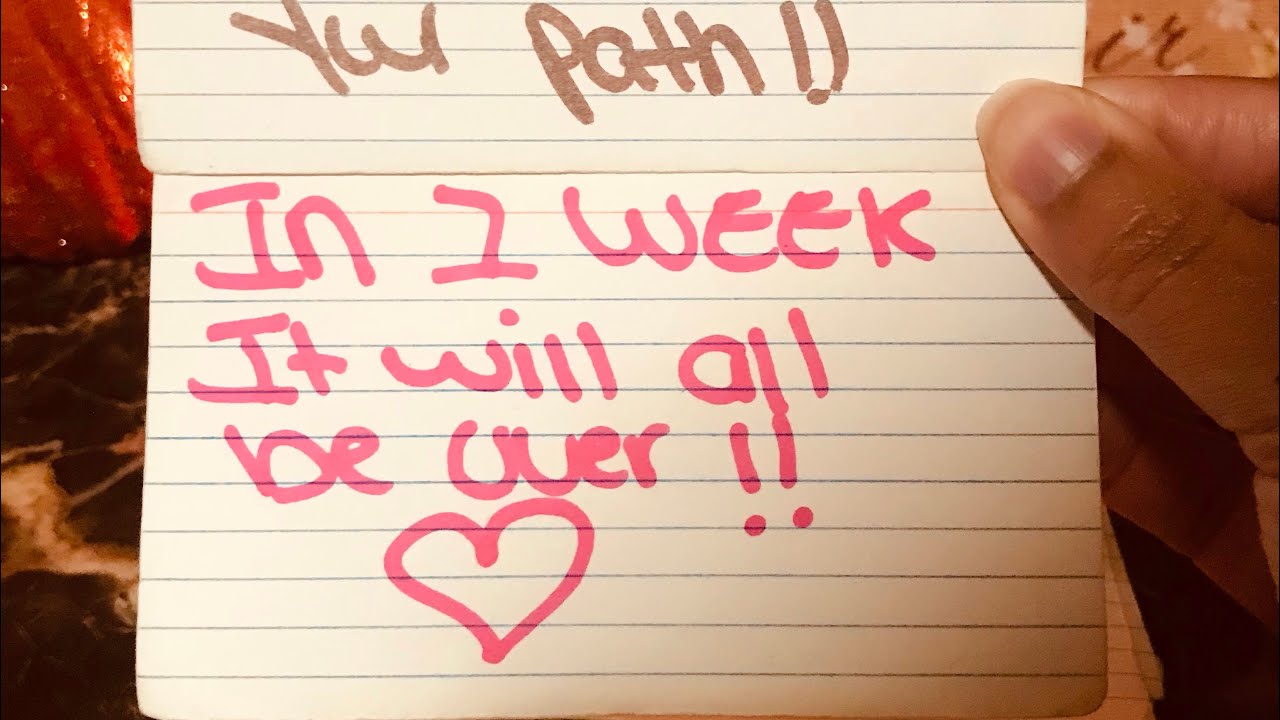 Your Path!!
In 1 WEEK
It will all
be over!!